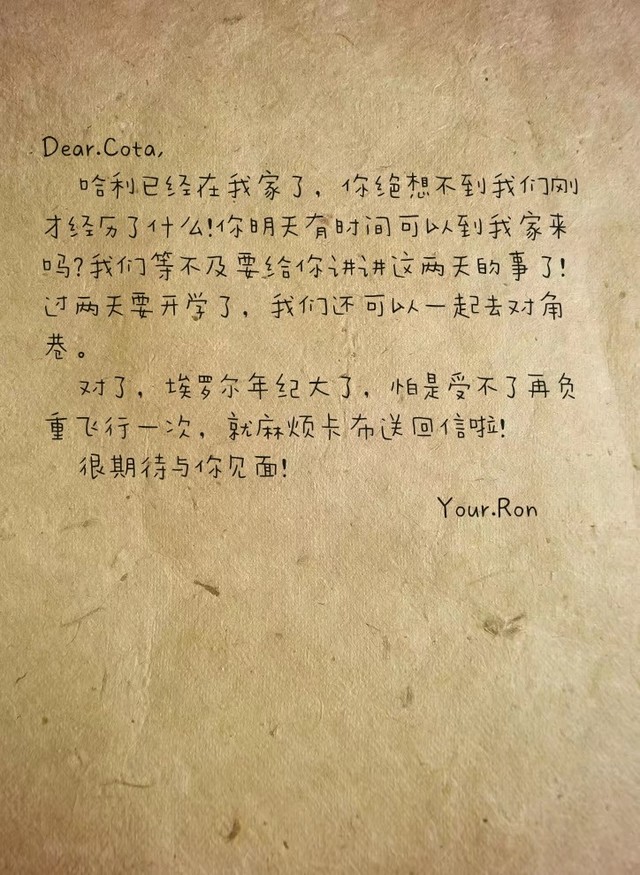 Dear.Cota,
哈利已经在我家了，你绝想不到我们刚
才经历了什么!你明天有时间可以到我家来
吗?我们等不及要给你讲讲这两天的事了!
过两天要开学了，我们还可以一起去对角
巷。
对了，埃罗尔年纪大了，怕是受不了再负
重飞行一次，就麻烦卡布送回信啦!
很期待与你见面!
Your.Ron